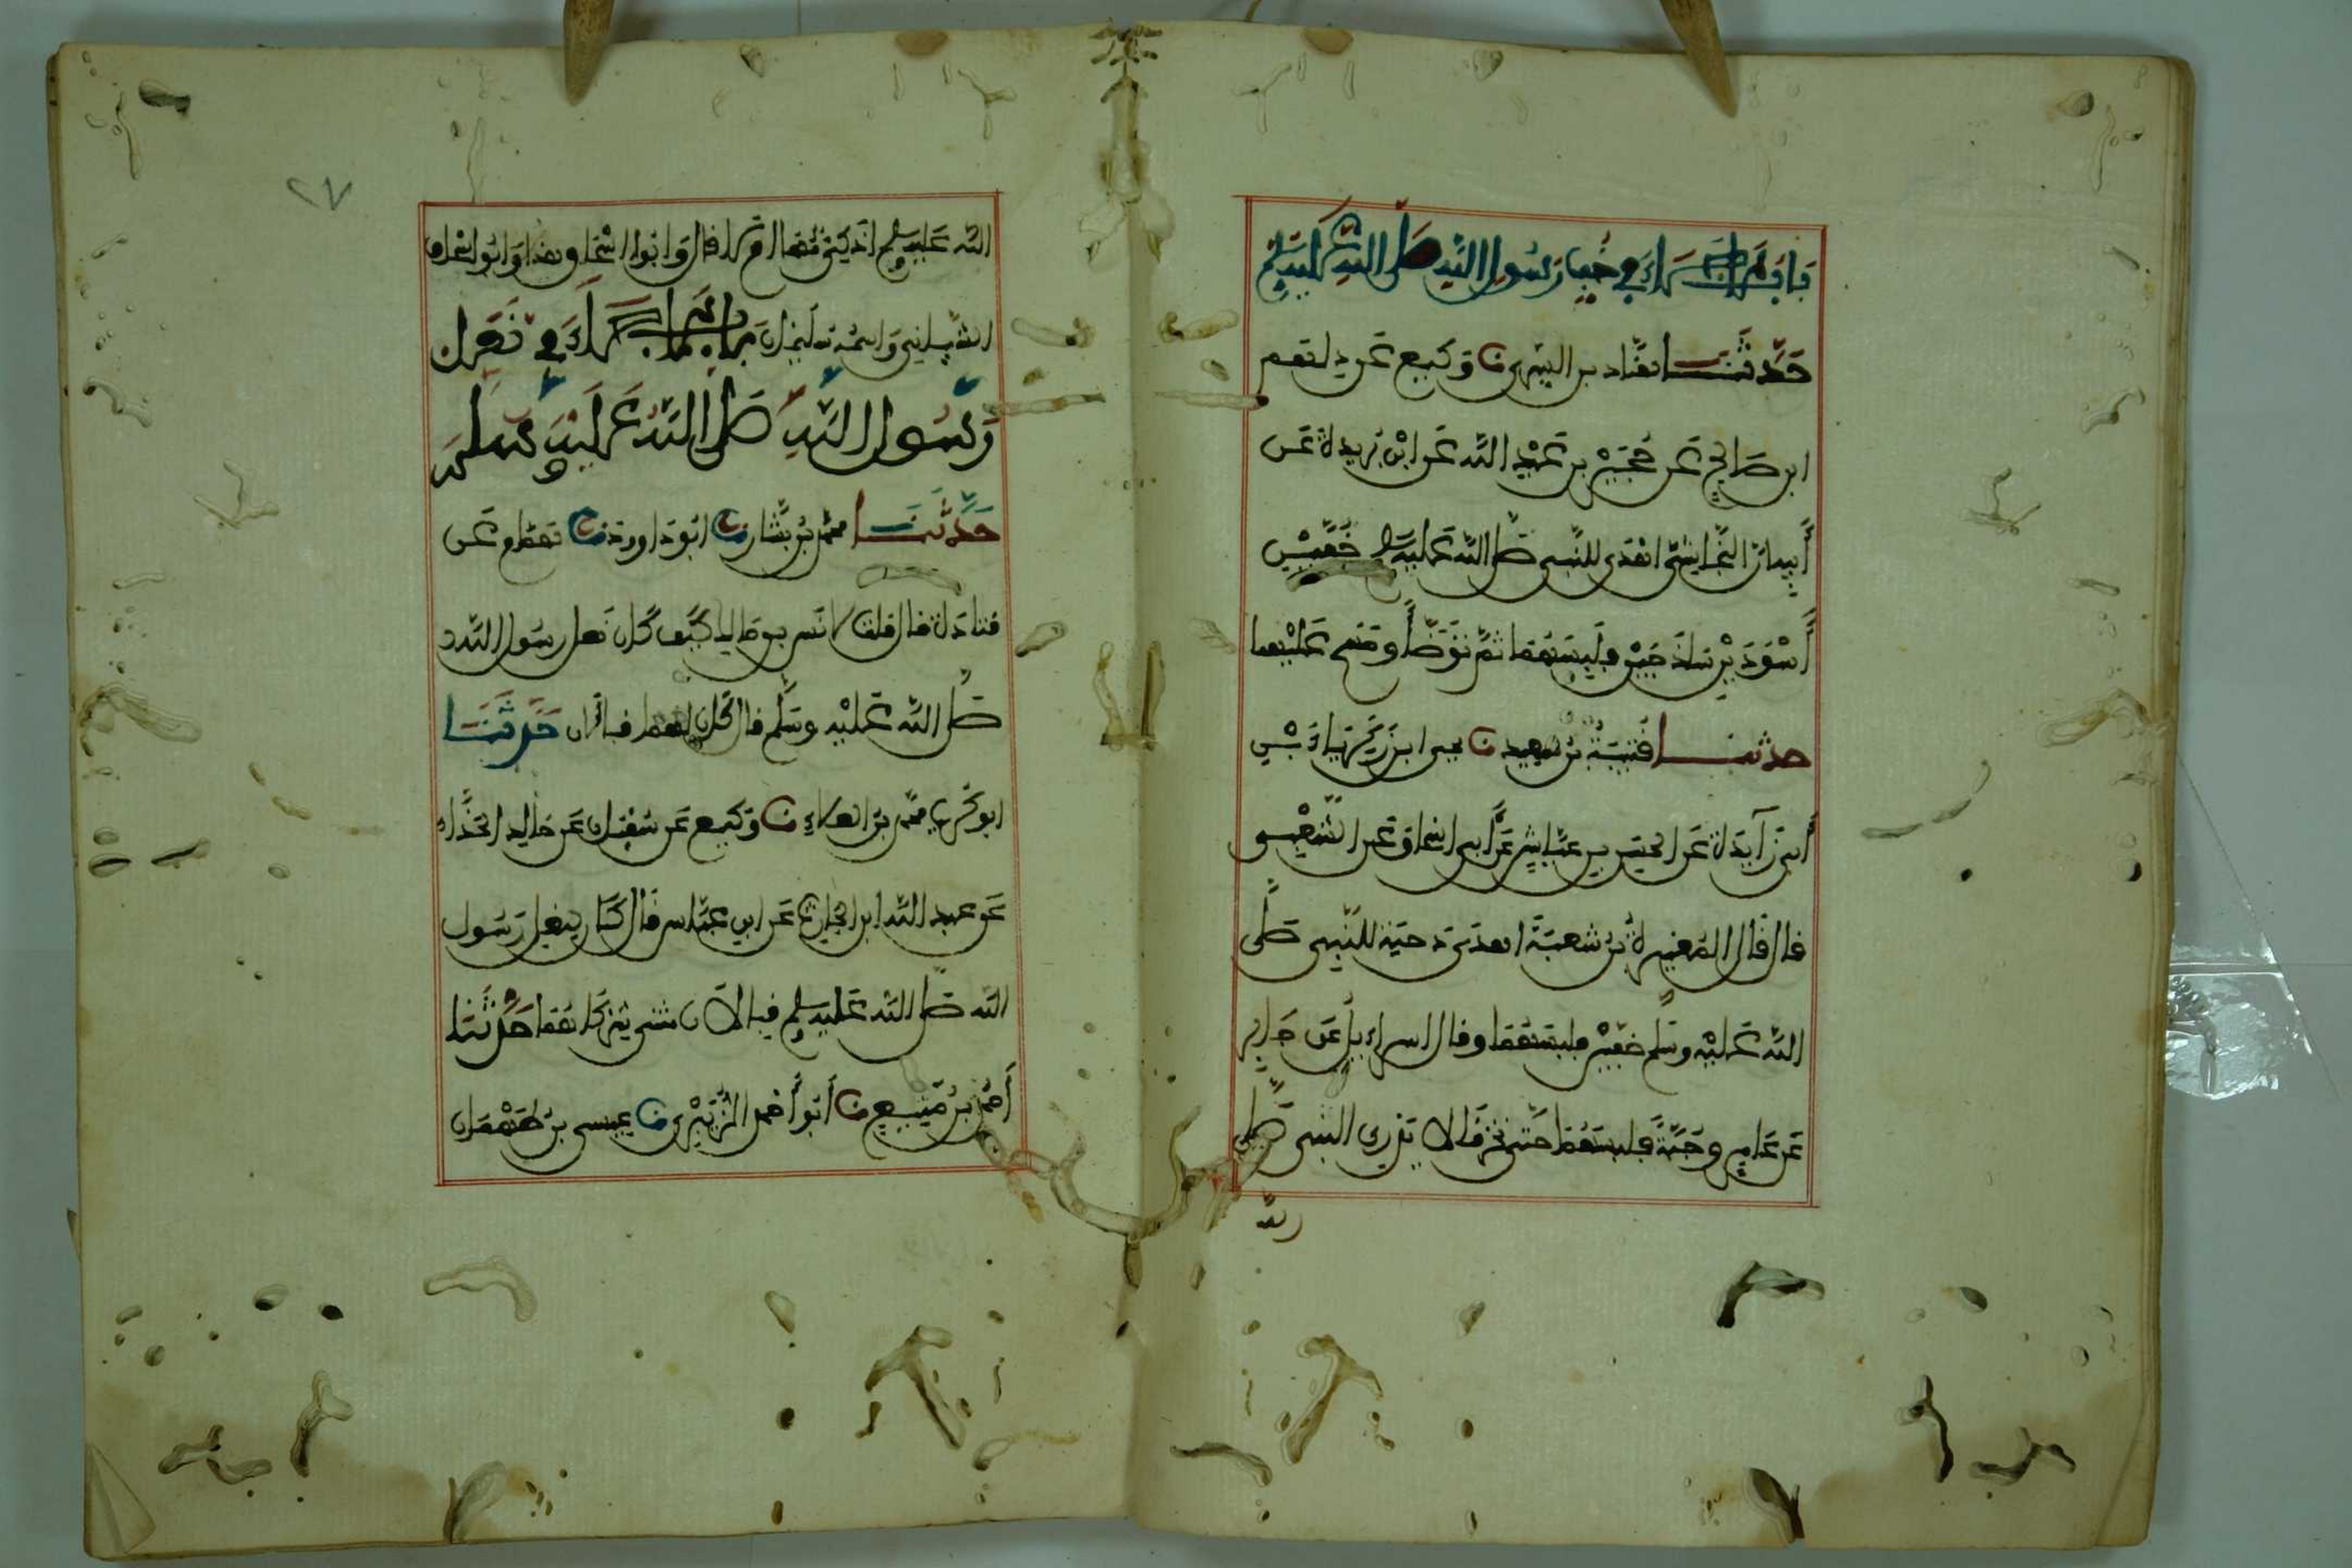 باب ما جاء في خف رسول الله صلى الله عليه وسلم
حدثنا هناد بن السري نا وكيع عن دلهم
ابن صالح عن حجير بن عبد الله عن ابن بريدة عن
أبيه ان النجاشي اهدى للنبي صلى الله عليه وسلم خفين
أسودين ساذجين فلبسهما ثم توضأ ومسح عليهما
حدثنا قتيبة بن سعيد نا يحيى ابن زكرياء بن
أبي زآيدة عن الحسن بن عياش عن أبي اسحاق عن الشعبي
قال قال المغيرة بن شعبة اهدى دحية للنبي صلى
الله عليه وسلم خفين فلبسهما وقال اسراءيل عن جابر
عن عامر وجبة فلبسهما حتى تخرقا لا يدري النبي صلى
الله
٢٧
الله عليه وسلم اذكي هما ام لا قال وابو اسحاق هذا وابو اسحاق
الشيباني واسمه سليمان باب ما جاء في نعل
رسول الله صلى الله عليه وسلم
حدثنا محمد بن بشار نا ابو داود نا همام عن
قتادة قال قلت لانس بن مالك كيف كان نعل رسول الله
صلى الله عليه وسلم قال كان لهما قبالان حدثنا
ابو كريب محمد بن العلاء نا وكيع عن سفين عن خالد الحذاء
عن عبد الله ابن الحارث عن ابن عباس قال كان لنعل رسول
الله صلى الله عليه وسلم قبالان مثنى شراكهما حدثنا
أحمد بن منيع نا أبو أحمد الزبيري نا عيسى بن طهمان